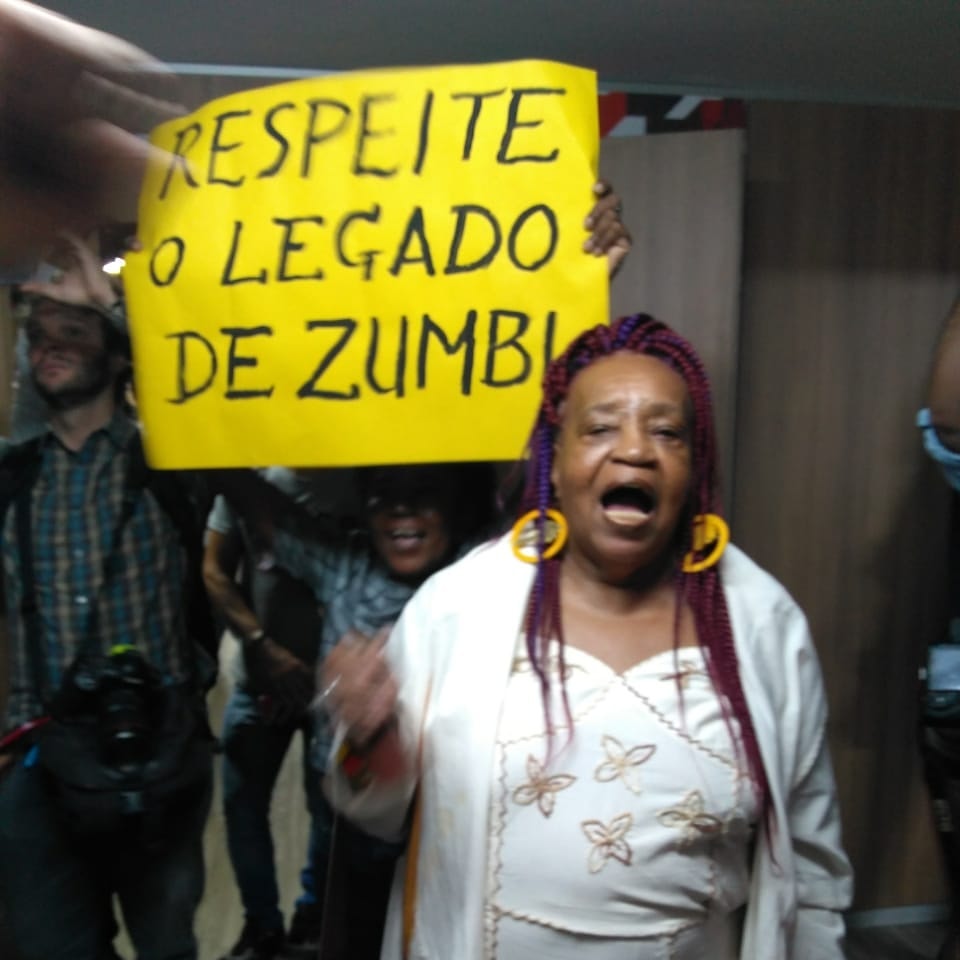 RESPEITE
O LEGADO
DE ZUMBI